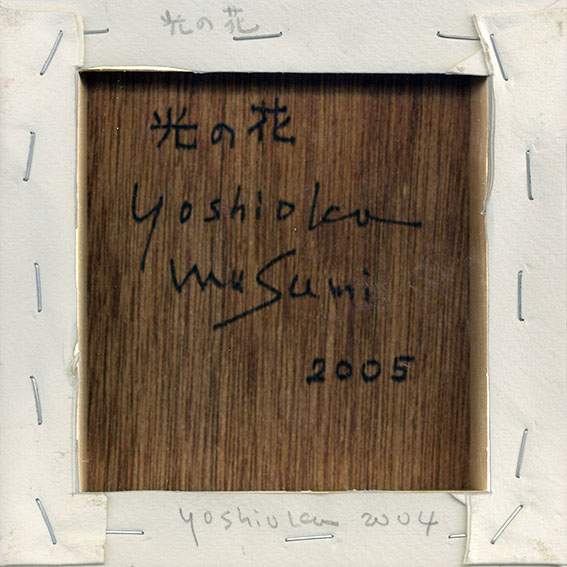 光の花
光の花
yoshioka
masumi
2005
yoshioka 2004